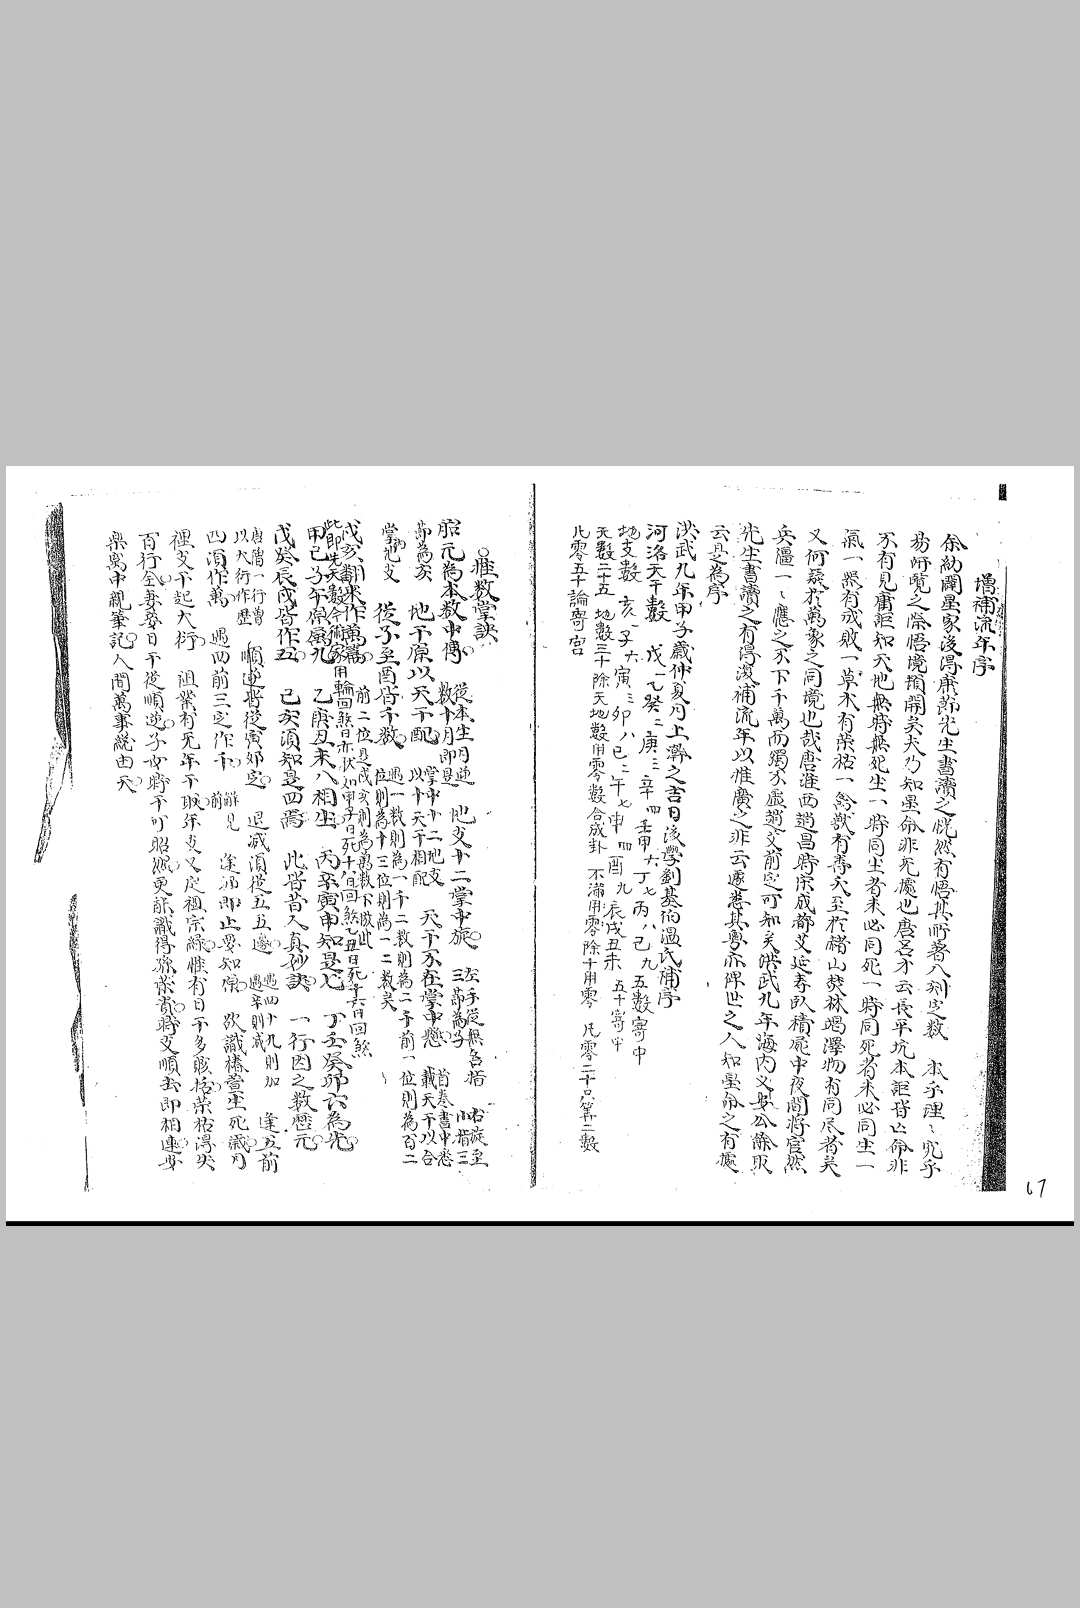 增補流年序
余幼閱星家後得康節先生書讀之恍然有悟其所著八刻定數 本乎理〻究乎
易研覽之深悟境頓開矣夫乃知星命非无據也唐呂才云長平坑卒詎皆亡命非
不有見庸詎知天地無時無死生一時同生者未必同死一時同死者未必同生一
氣一然有成敗一草木有榮枯一禽獸有壽夭至於緒山焚林竭澤物有同尽者矣
又何疑於萬象之同境也哉唐淮西趙昌時宗成都艾延寿臥積屍中夜聞將官然
兵僵一〻應之不下千萬而獨不應趙艾前定可知矣洪武九年海内乂安公餘取
先生書讀之有得復補流年以推廣之非云遽悉其粤亦俾世之人知星命之有據
云是為序
洪武九年甲子歲仲夏月上澣之吉日後學劉基伯溫氏補序
河洛天干數 戊一乙癸二庚三辛四壬甲六丁七丙八己九 五數寄中
地支數 亥一子六寅三卯八巳二午七申四酉九辰戌丑未 五十寄中
天數二十五 地數三十除天地數用零數合成卦 不滿用零除十用零 凡零二十只算二數
凡零五十論寄宮
推數掌訣
胎元為本數中傳 從本生月逆數十月即是 地支十二掌中旋 左手從無名指 右旋至
節為亥 地干原以天干配 掌中十二地支以十天干相配 天干亦在掌中懸 首卷書中悉載天干以合
掌地支 從子至酉皆千數 遇一數則為一千二數則為二千前一位則為百二位則為十三位則為一二數矣
戌亥翻來作萬篇 前二位是戌亥則為萬數下倣此
此即先天數令術家用輪回煞日亦狀如甲子日死十八日回煞乙丑日死十六日回煞
甲己子午原屬九 乙庚丑未八相生 丙辛寅申知是七 丁壬癸卯六為先
戊癸辰戌皆作五 己亥須知是四焉 此皆昔人真妙訣 一行因之數歷元
唐僧一行曾以大行作歷 順逆皆從寅卯定 退減須從五五邊 遇四十九則加遇辛則減 逢五前
四須作萬 遇四前三定作千 逢源即止要知原 欲識椿萱生死歲月
裡支干起大行 祖業有无年干取年支又定祖宗緣惟有日干多戰枯榮枯得失
百行全妻妾日干從順逆子女時干可昭然更能識得孫榮貴時支順去即相連安
樂窩中親筆記人間萬事總由天
67